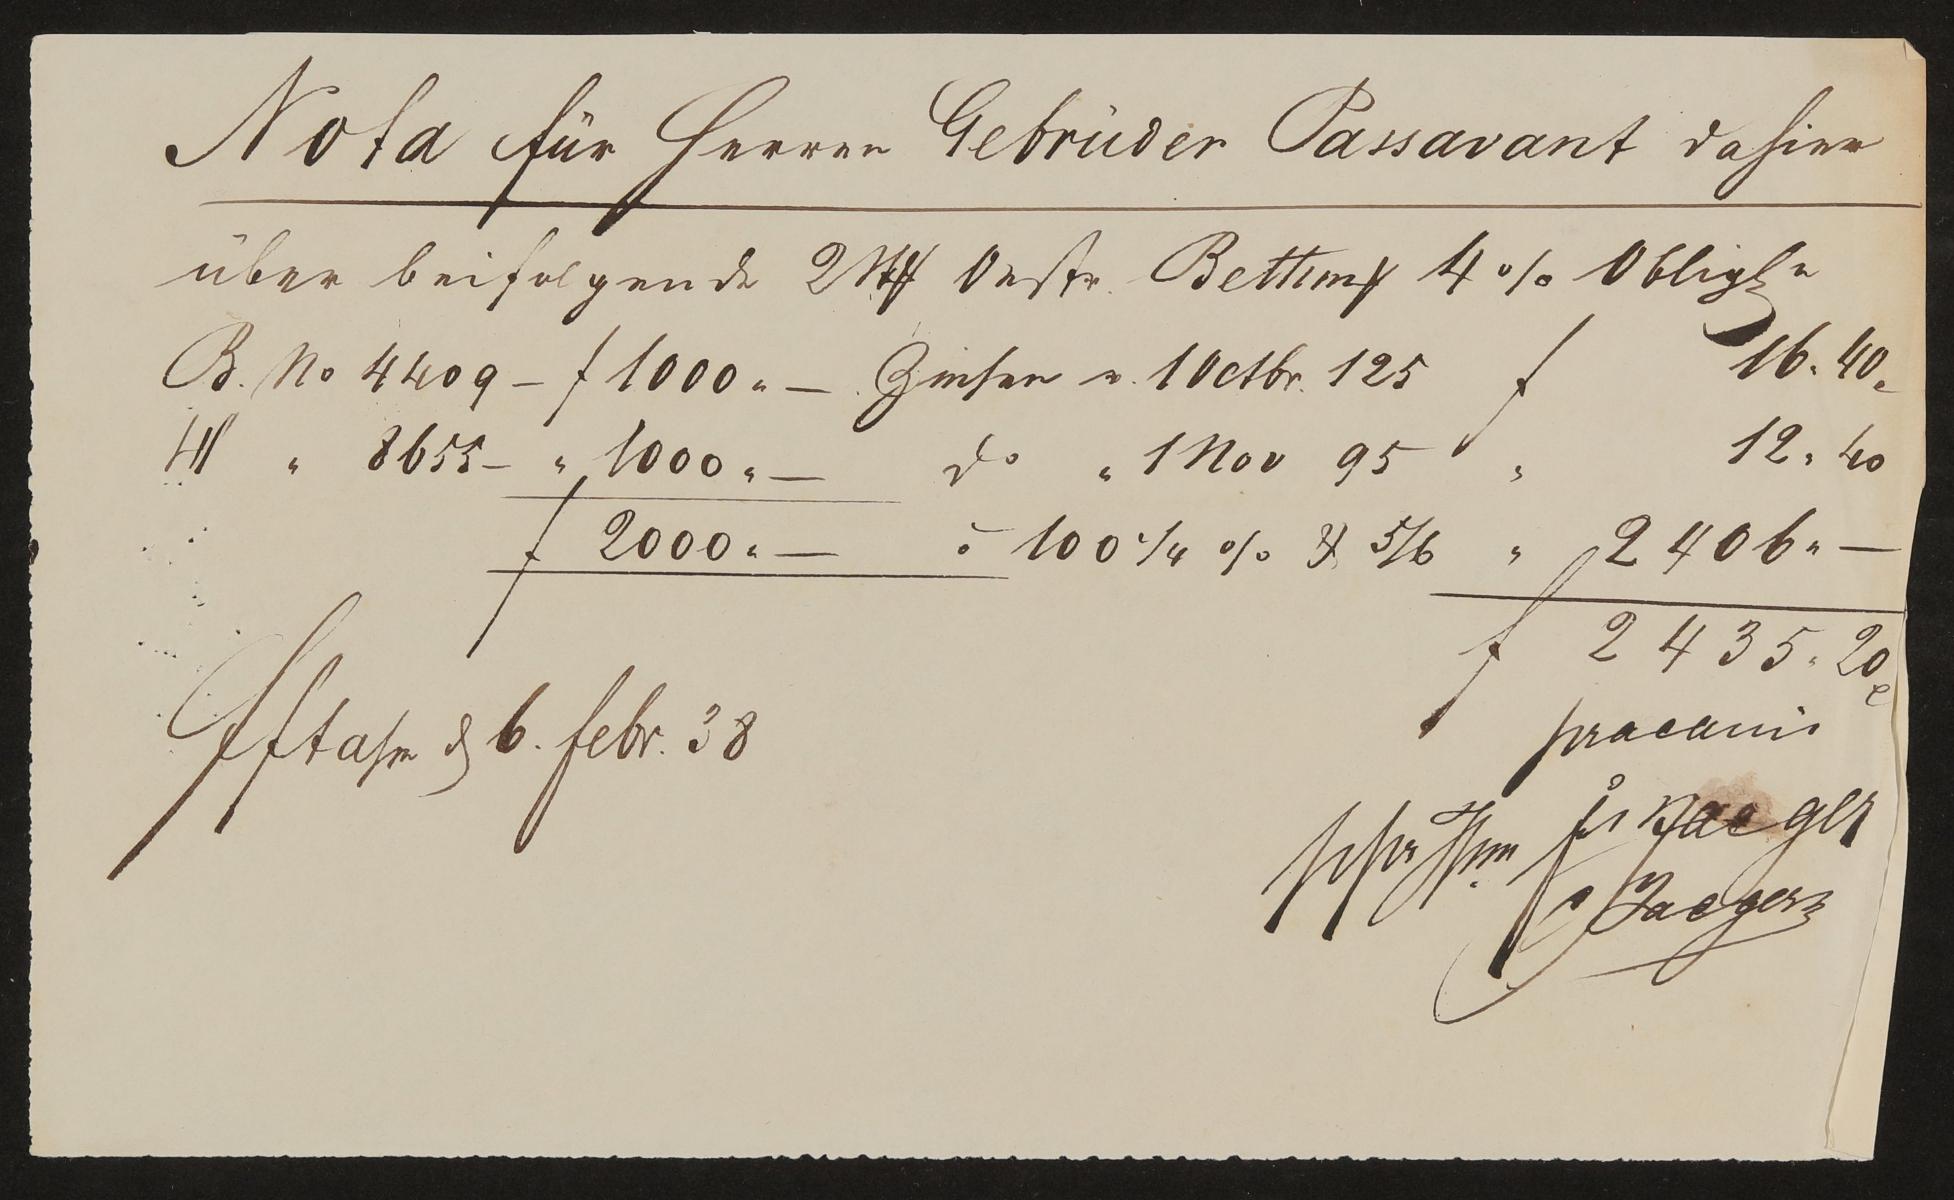 Nota für Herren Gebrüder Passavant dahier
über beifolgende 2 Oestr. Bethm 4 % Obligt n
B. No 4409 – f 1000 „ — Zinsen v. 1 Octbr. 125 f 16. 40.
„ 8655 – „ 1000 „ — do „ 1 Nov 95 „ 12. 40
f 2000 „ — à 100 1/4 % & 5/6 „ 2406 „ —
f 2435. 20
Ffta/m d 6. febr. 38
Jaeger
Jaeger